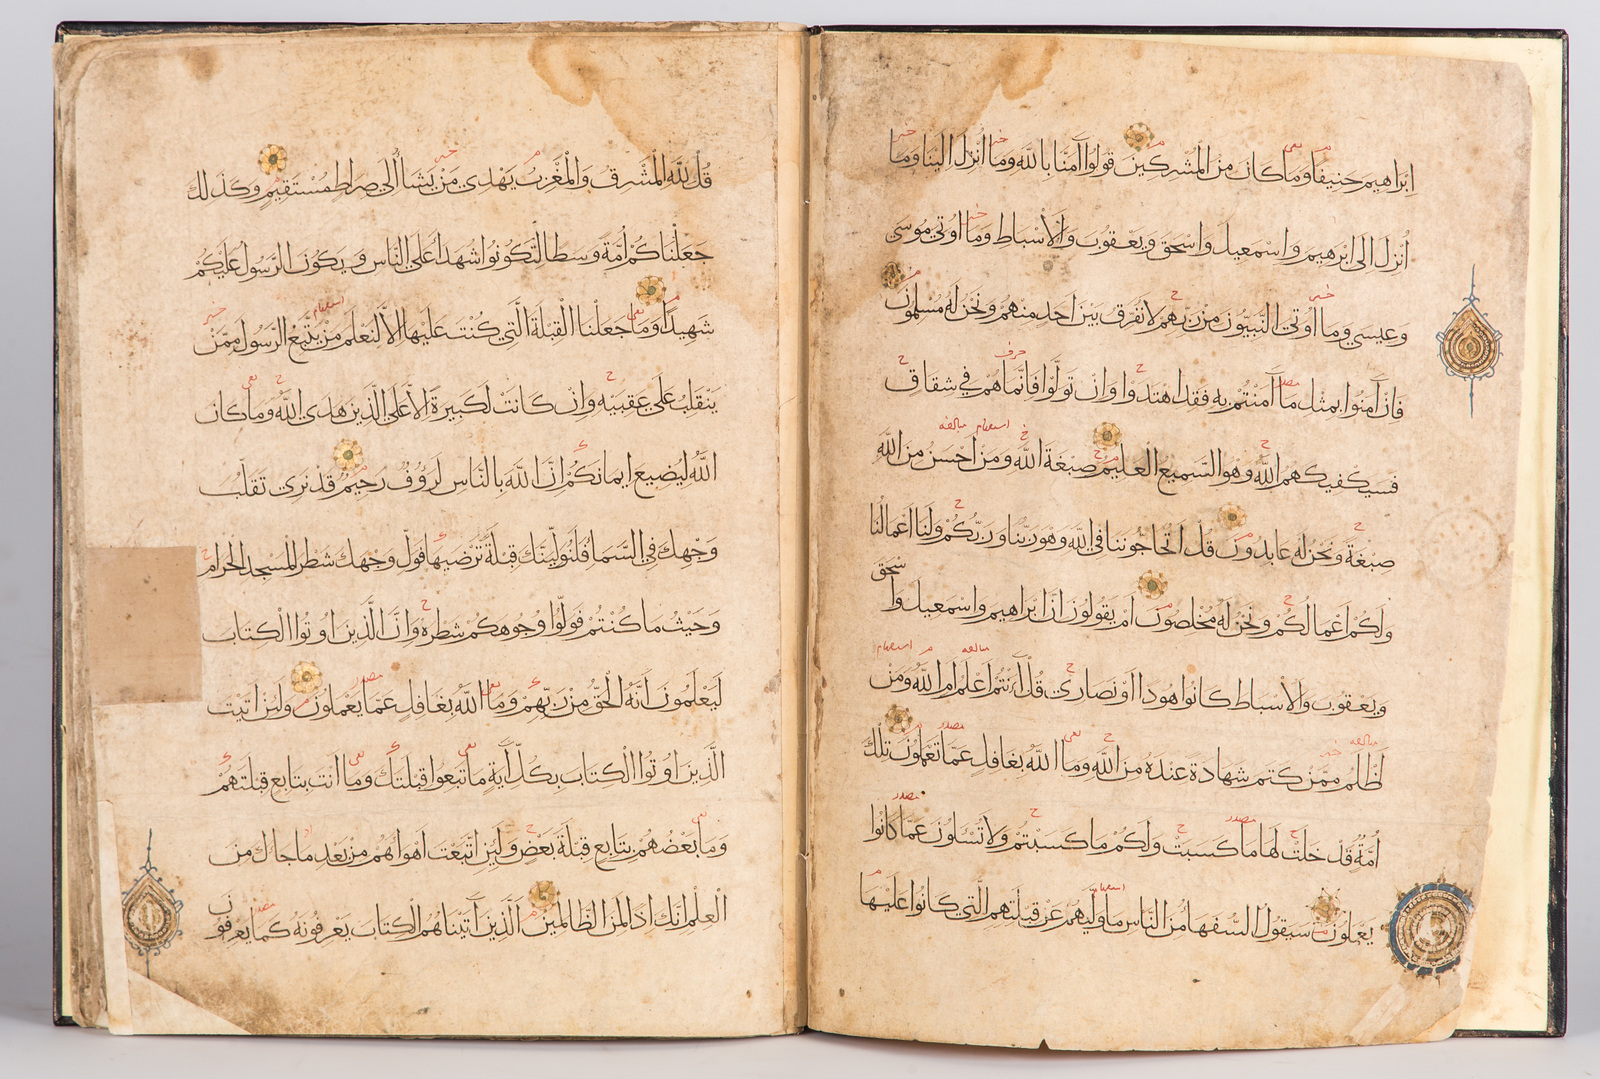 إبراهيم حنيفا وما كان من المشركين قولوا آمنا بالله وما أنزل إلينا وما
أنزل إلى إبرهيم وإسمعيل وإسحق ويعقوب والأسباط وما أوتي موسى
وعيسى وما أوتي النبيون من ربهم لا نفرق بين أحد منهم ونحن له مسلمون
فإن آمنوا بمثل ما آمنتم به فقد اهتدوا وإن تولوا فإنما هم في شقاق
فسيكفيكهم الله وهو السميع العليم صبغة الله ومن أحسن من الله
صبغة ونحن له عابدون قل أتحاجوننا في الله وهو ربنا وربكم ولنا أعمالنا
ولكم أعمالكم ونحن له مخلصون أم يقولون إن إبراهيم وإسمعيل وإسحق
ويعقوب والأسباط كانوا هودا أو نصارى قل ءأنتم أعلم أم الله ومن
أظلم ممن كتم شهادة عنده من الله وما الله بغافل عما تعملون تلك
أمة قد خلت لها ما كسبت ولكم ما كسبتم ولا تسئلون عما كانوا
يعملون سيقول السفها من الناس ما وليهم عن قبلتهم التي كانوا عليها
قل لله المشرق والمغرب يهدي من يشا إلى صراط مستقيم وكذلك
جعلناكم أمة وسطا لتكونوا شهدا على الناس ويكون الرسول عليكم
شهيدا وما جعلنا القبلة التي كنت عليها إلا لنعلم من يتبع الرسول ممن
ينقلب على عقبيه وإن كانت لكبيرة إلا على الذين هدى الله وما كان
الله ليضيع إيمانكم إن الله بالناس لرؤف رحيم قد نرى تقلب
وجهك في السما فلنولينك قبلة ترضيها فول وجهك شطر المسجد الحرام
وحيث ما كنتم فولوا وجوهكم شطره وإن الذين أوتوا الكتاب
ليعلمون أنه الحق من ربهم وما الله بغافل عما يعملون ولئن أتيت
الذين أوتوا الكتاب بكل آية ما تبعوا قبلتك وما أنت بتابع قبلتهم
وما بعضهم بتابع قبلة بعض ولئن اتبعت أهواهم من بعد ما جاك من
العلم إنك إذا لمن الظالمين الذين آتيناهم الكتاب يعرفونه كما يعرفون